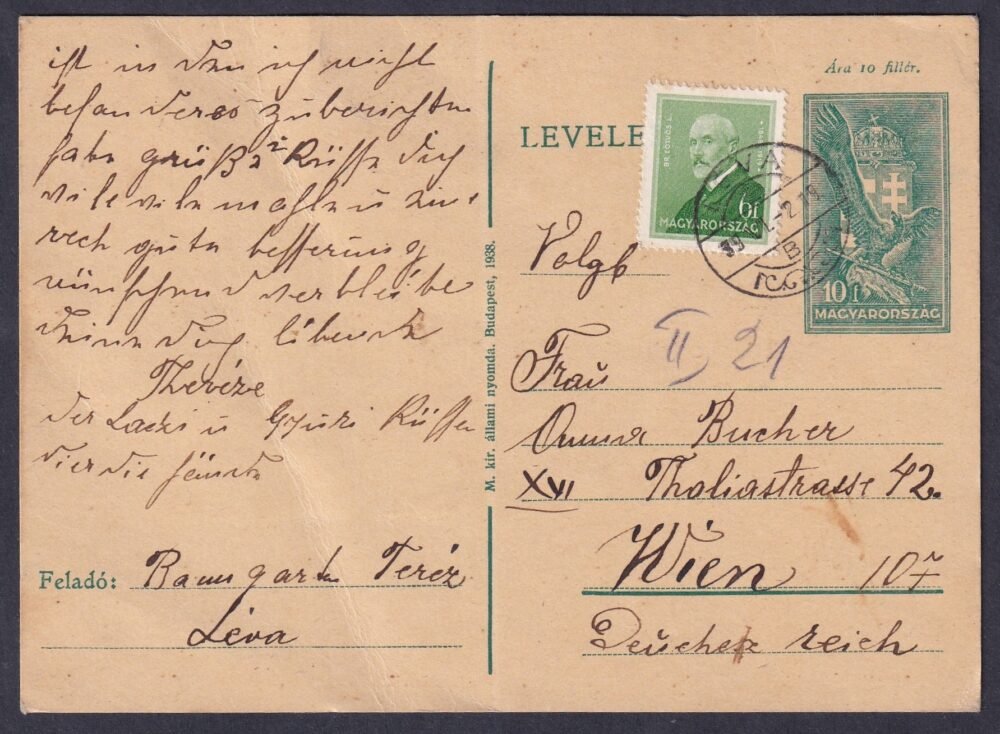 ist u dan ich nichts
besanderes zuberichten
habe grüße 2 Küsse Dich
viele viele mahle u
gute besserung
wünschend verbleibe
Deine Dich libende
Theréze
der Laczi u Gyuri Küssen
dier die Hände
Feladó: Baumgarten Teréz
Léva
M. kir. állami nyomda. Budapest, 1938.
Ára 10 fillér.
LEVELE
BR. EÖTVÖS L.
6f
MAGYARORSZÁG
10 f
MAGYARORSZÁG
II 21
Frau
Anna Bucher
XVI Thaliastrasse 42.
Wien 107
Deuches reich